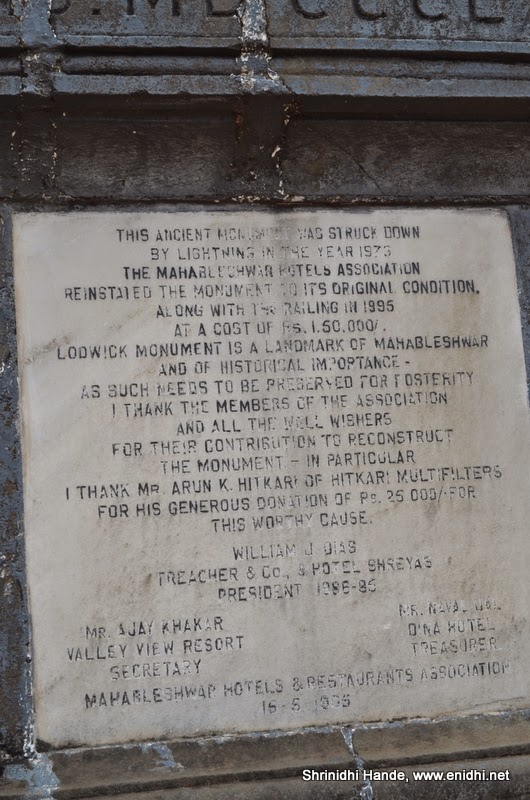 MDCCCL
THIS ANCIENT MONUMENT WAS STRUCK DOWN
BY LIGHTNING IN THE YEAR 1973
THE MAHABLESHWAR HOTELS ASSOCIATION
REINSTATED THE MONUMENT TO ITS ORIGINAL CONDITION,
ALONG WITH THE RAILING IN 1995
AT A COST OF RS. 1,50,000/.
LODWICK MONUMENT IS A LANDMARK OF MAHABLESHWAR
AND OF HISTORICAL IMPORTANCE -
AS SUCH NEEDS TO BE PRESERVED FOR POSTERITY
I THANK THE MEMBERS OF THE ASSOCIATION
AND ALL THE WELL WISHERS
FOR THEIR CONTRIBUTION TO RECONSTRUCT
THE MONUMENT - IN PARTICULAR
I THANK MR. ARUN K. HITKARI OF HITKARI MULTIFILTERS
FOR HIS GENEROUS DONATION OF RS. 25 000/-FOR
THIS WORTHY CAUSE.
WILLIAM J. DIAS
TREACHER & CO., & HOTEL SHREYAS
PRESIDENT
MR. AJAY KHAKAR
VALLEY VIEW RESORT
SECRETARY
MR. NAVAL
D'NA HOTEL
TREASURER
MAHABLESHWAR HOTELS & RESTAURANTS ASSOCIATION
16-5-1995
Shrinidhi Hande, www.enidhi.net